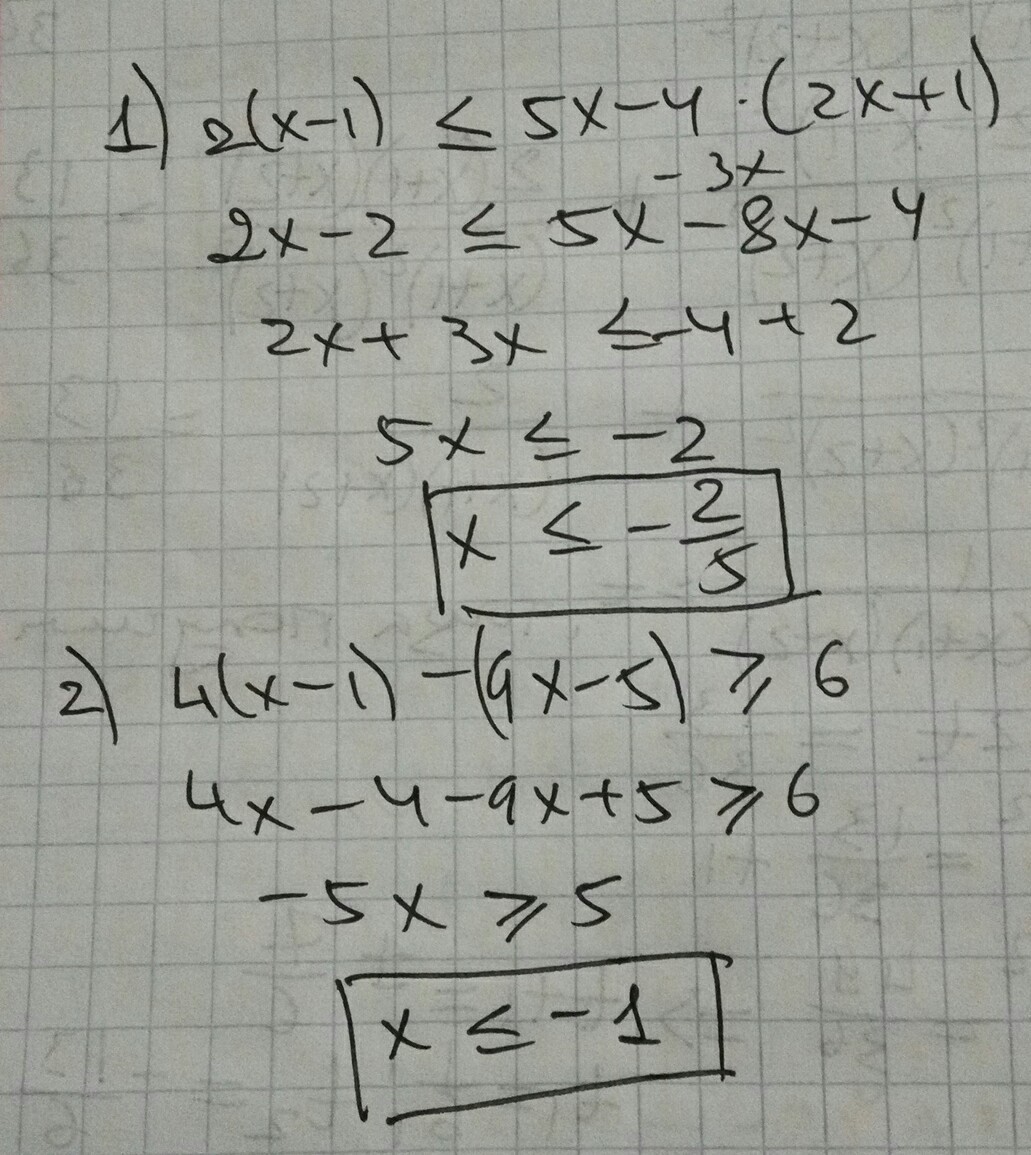 1) 2(x-1) ≤ 5x-4·(2x+1)
-3x
2x-2 ≤ 5x-8x-4
2x+3x ≤ -4+2
5x ≤ -2
x ≤ -2/5
2) 4(x-1)-(9x-5) ⩾ 6
4x-4-9x+5 ⩾ 6
-5x ⩾ 5
x ≤ -1